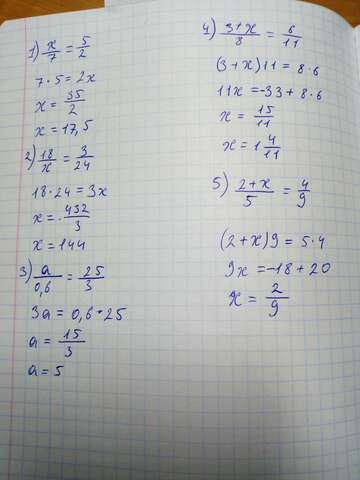 1) x/7 = 5/2
7·5 = 2x
x = 35/2
x = 17,5
2) 18/x = 3/24
18·24 = 3x
x = 432/3
x = 144
3) a/0,6 = 25/3
3a = 0,6·25
a = 15/3
a = 5
4) 3+x/8 = 6/11
(3+x)11 = 8·6
11x = -33 + 8·6
x = 15/11
x = 1 4/11
5) 2+x/5 = 4/9
(2+x)9 = 5·4
9x = -18 + 20
x = 2/9